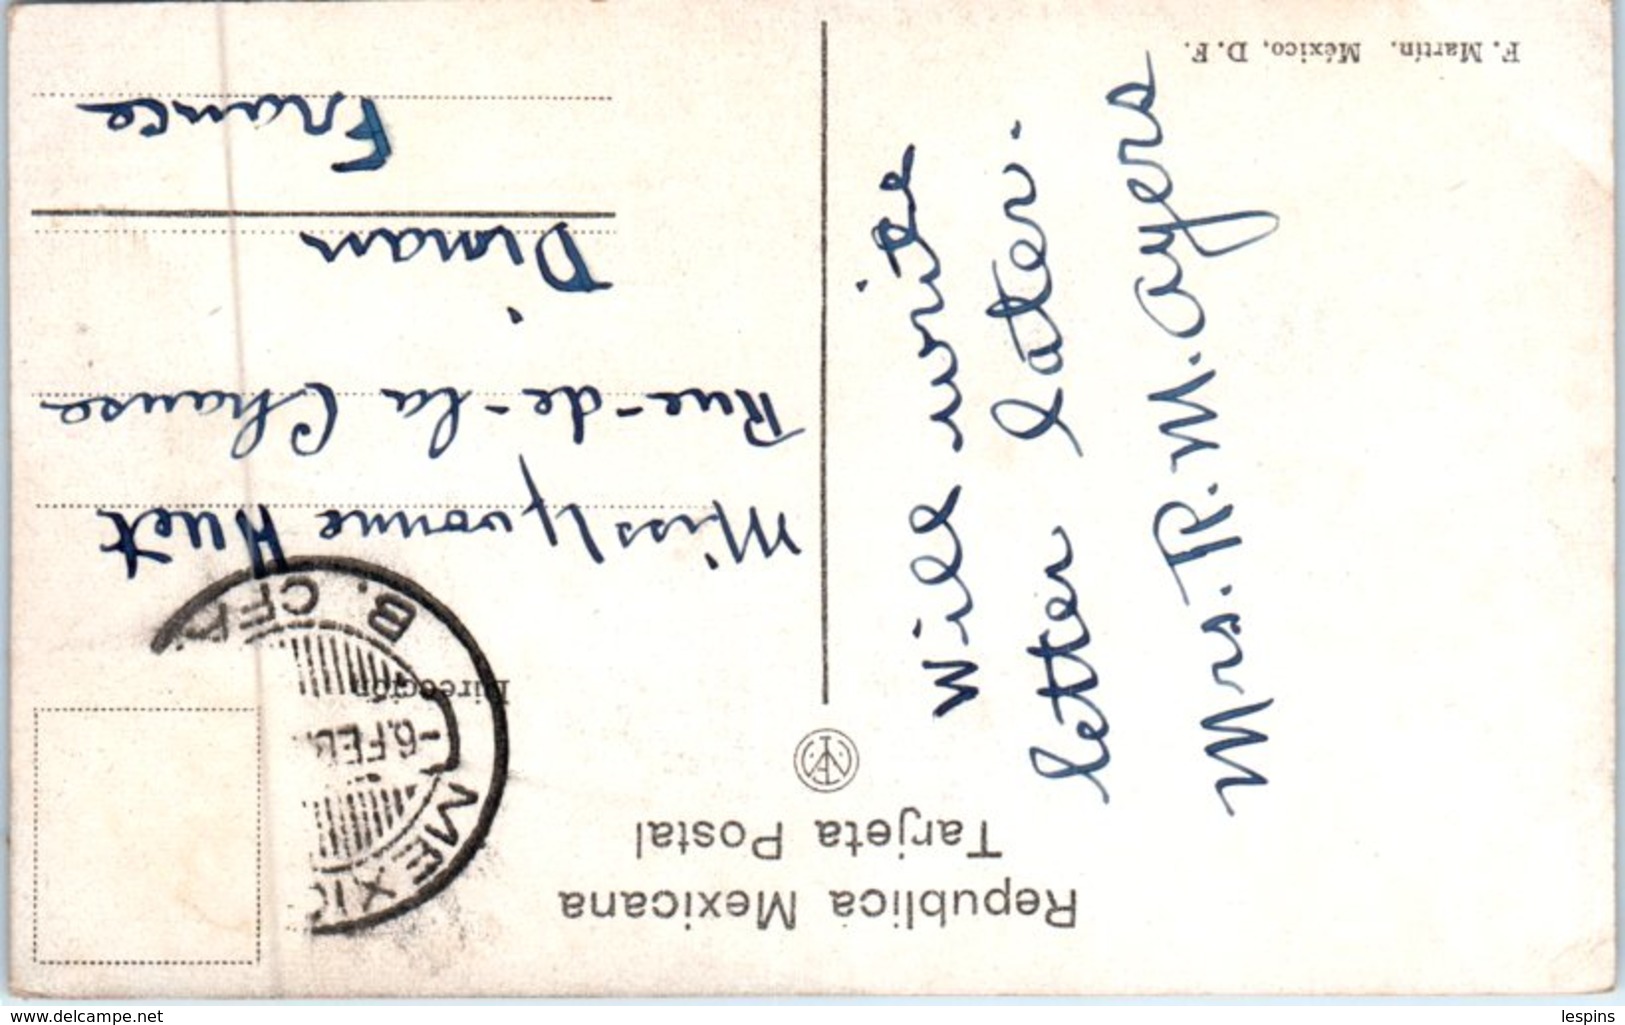 Republica Mexicana
Tarjeta Postal
Dirección
MEXICO
-6.FEB.
B. CFA
Will write
letter later.
Mrs. R. M. Ayers
Miss Yvonne Huet
Rue-de-la Chause
Dinan
France
F. Martín. México, D.F.
www.delcampe.net
lespins